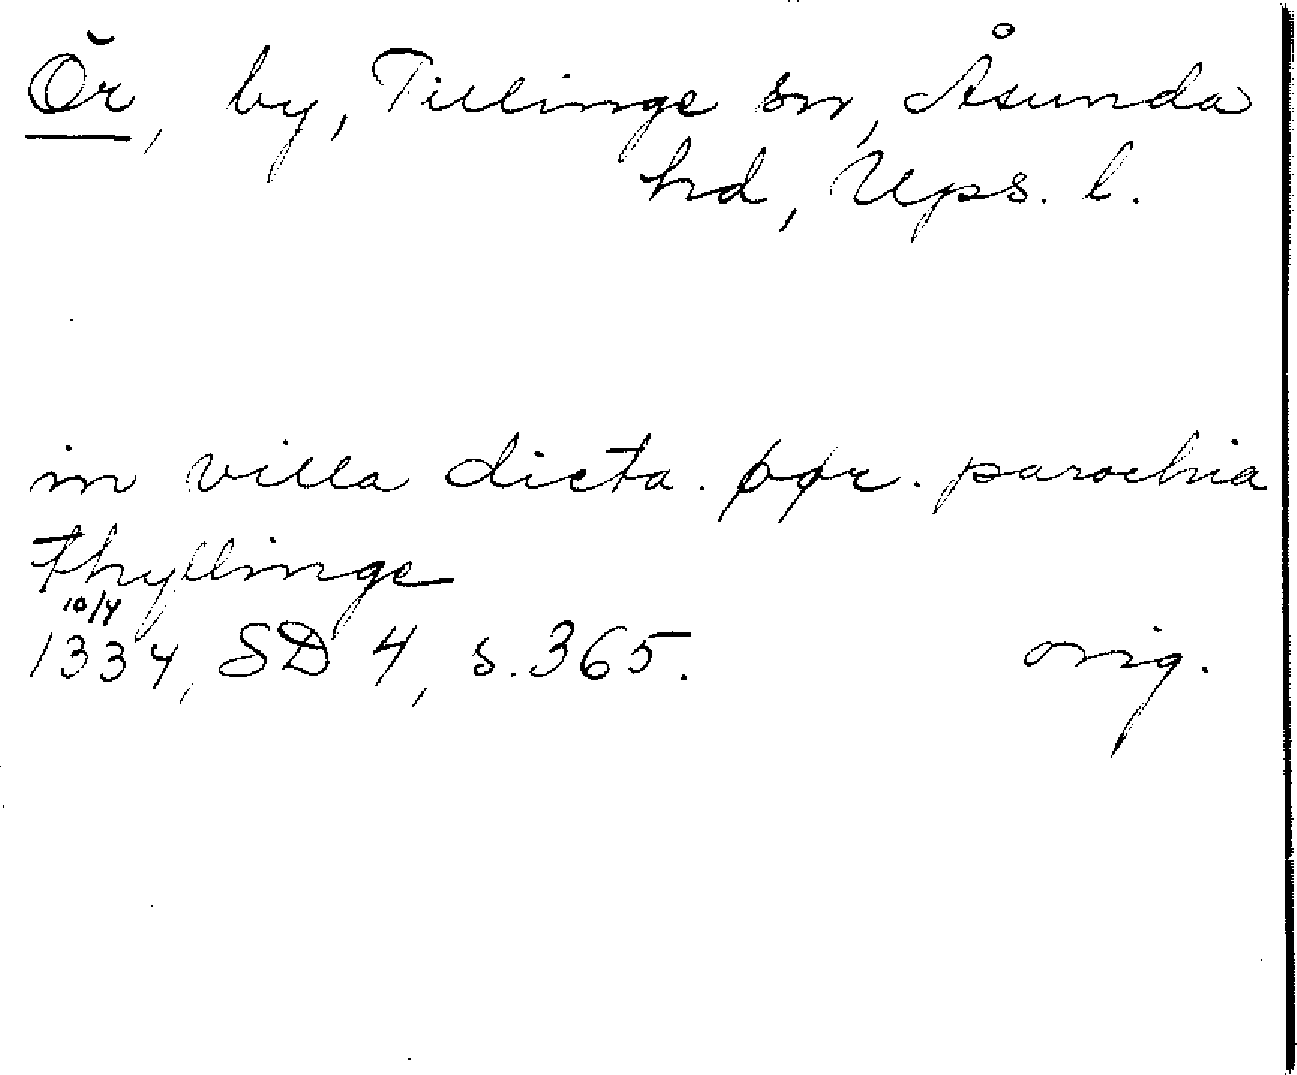 Ör, by, Tillinge sn, Åsunda
hd, Ups. l.
in villa dicta. øør. parochia
thyllinge
10/4
1334, SD 4, s. 365. orig.